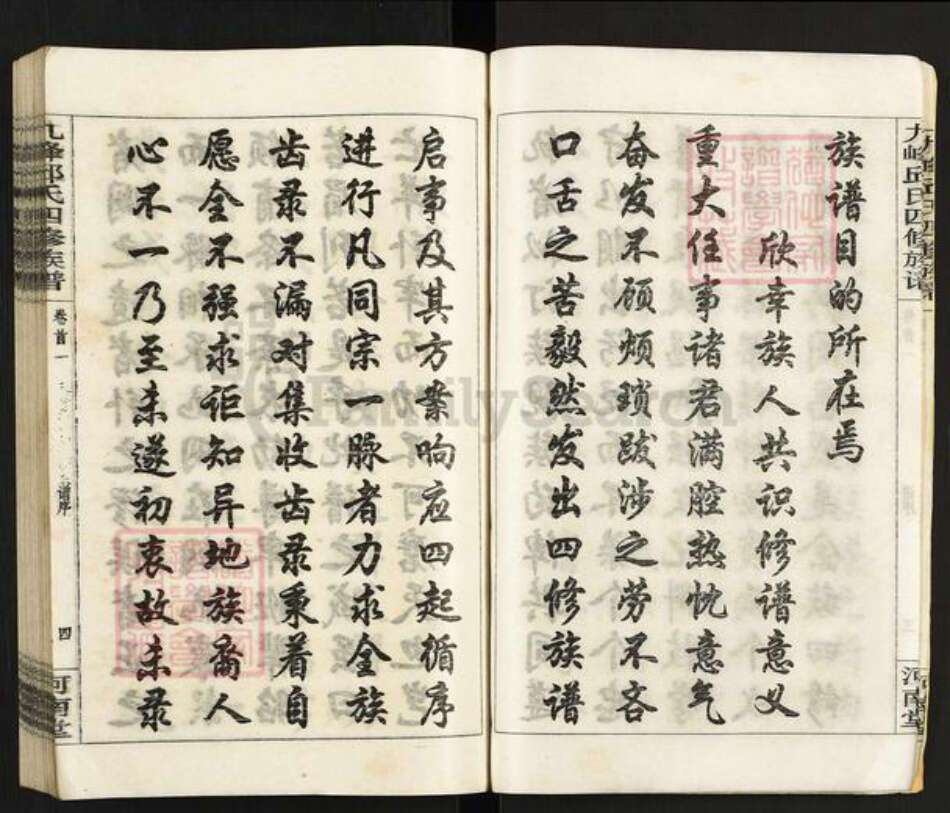 族谱目的所在焉
欣幸族人共识修谱意义
重大任事诸君满腔热忱意气
奋发不顾烦琐跋涉之劳不吝
口舌之苦毅然发出四修族谱
启事及其方案响应四起循序
进行凡同宗一脉者力求全族
齿录不漏对集收齿录秉着自
愿全不强求讵知异地族裔人
心不一乃至未遂初衷故未录
九峰邱氏四修族谱
卷首一
谱序
四
河南堂
九峰邱氏四修族谱
河南堂
FamilySearch